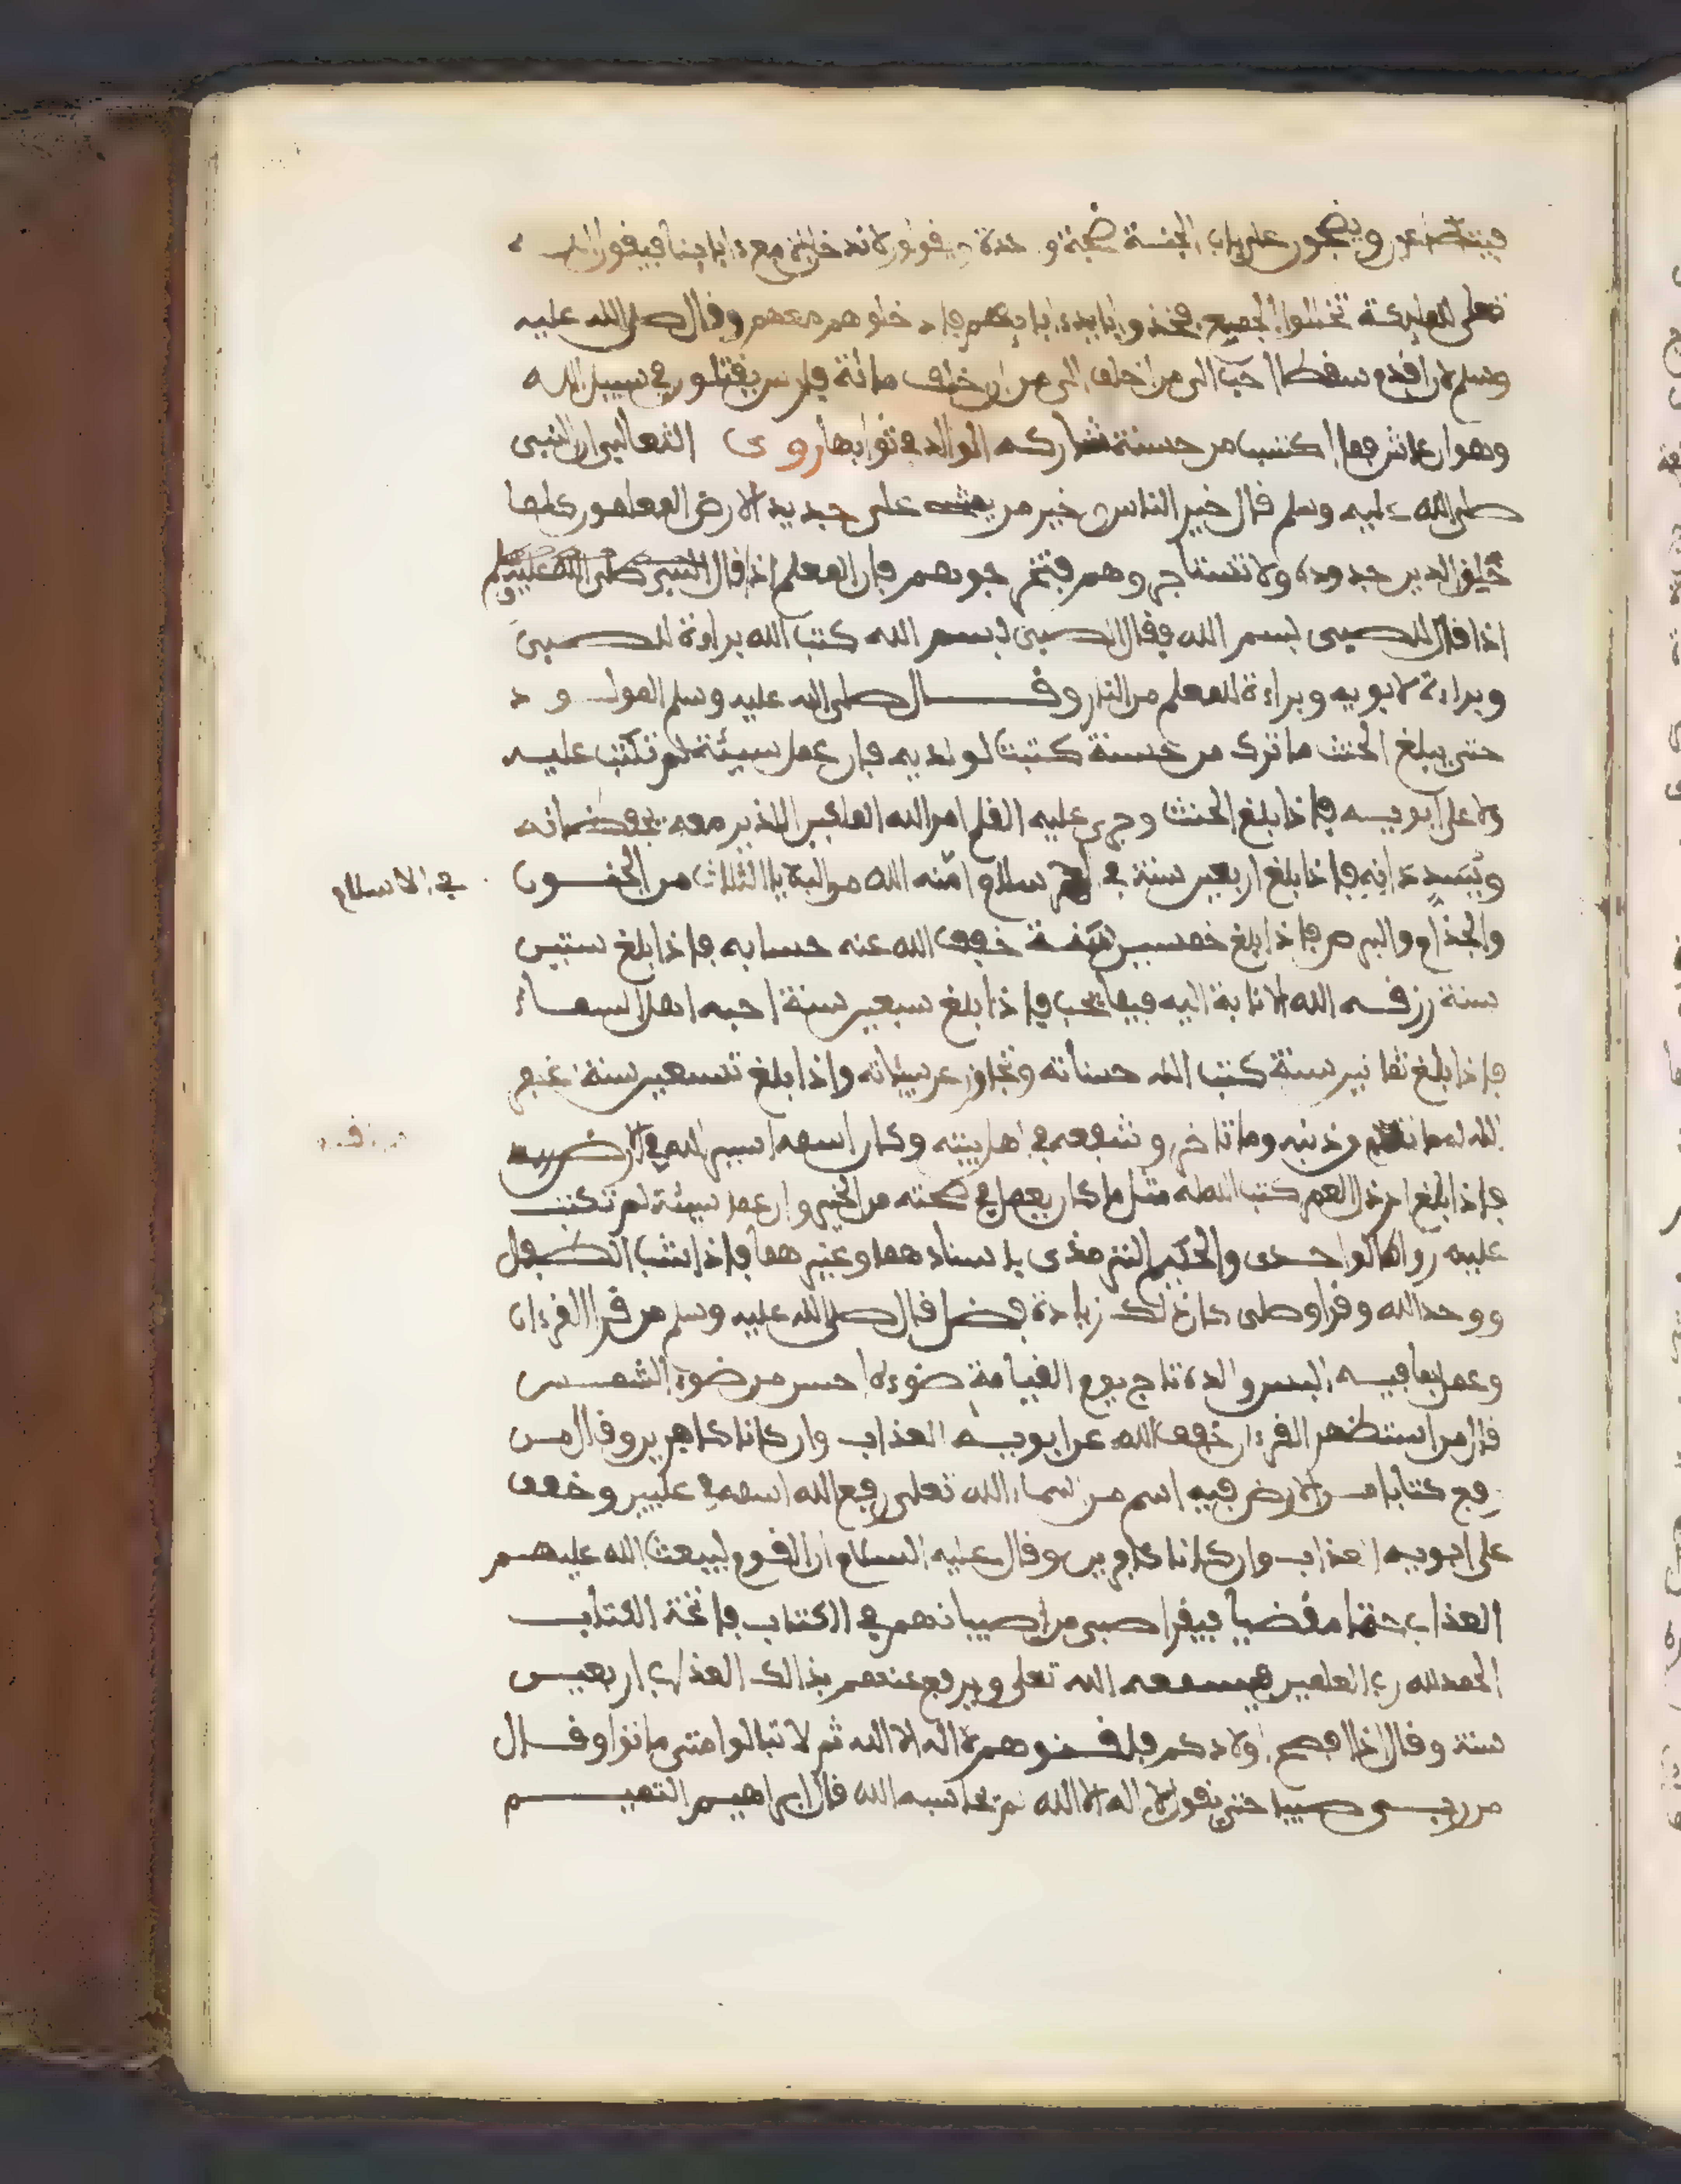 ويضجون على باب الجنة ضجة و حدة و يقولون لا ندخل إلا مع ءابائنا فيقول الله
تعلى للملائكة تخللوا الجميع فخذوا بأيدى ءابائهم فادخلوهم معهم وقال صلى الله عليه
وسلم لأن أقدم سقطا أحب الي من أن أخلف مائة فارس يقتلون في سبيل الله
وهو ان عاش فما اكتسب من حسنة شاركه الوالد في ثوابها روى الثعالبي ان النبي
صلى الله عليه وسلم قال خير الناس وخير من يمشي على جديد الارض المعلمون كلما
خلق الدين جددوه ولا تستاجروهم فتخرجوهم فإن المعلم اذا قال النبي صلى الله عليه وسلم
اذا قال للصبي بسم الله فقال الصبي بسم الله كتب الله براءة للصبي
وبراءة لأبويه وبراءة للمعلم من النار وقال صلى الله عليه وسلم المولود
حتى يبلغ الحنث ما ترك من حسنة كتبت لوالديه فإن عمل سيئة لم تكتب عليه
ولا على أبويه فإذا بلغ الحنث وجرى عليه القلم امر الله الملكين اللذين معه يحفظانه
ويسددانه فإذا بلغ اربعين سنة في الاسلام أمنه الله من البلايا الثلاث من الجنون
في الاسلام
والجذام والبرص فإذا بلغ خمسين سنة خفف الله عنه حسابه فإذا بلغ ستين
سنة رزقه الله الانابة اليه فيما يحب فإذا بلغ سبعين سنة احبه اهل السماء
فإذا بلغ ثمانين سنة كتب الله حسناته وتجاوز عن سيئاته واذا بلغ تسعين سنة غفر
الله له ما تقدم من ذنبه وما تاخر وشفعه في اهل بيته وكان اسمه اسير الله في الارض
فإذا بلغ ارذل العمر كتب الله له مثل ما كان يعمل في صحته من الخير وإن عمل سيئة لم تكتب
عليه رواه الواحدى والحكيم الترمذى بإسنادهما وغيرهما فإذا شب الطفل
ووحد الله وقرأ وصلى كان ذلك زيادة فضل قال صلى الله عليه وسلم من قرأ القرءان
وعمل بما فيه البس والده تاج يوم القيامة ضوءه احسن من ضوء الشمس
قال من استظهر القرءان خفف الله عن ابويه العذاب وان كانا كافرين وقال من
رفع كتابا من الارض فيه اسم من اسماء الله تعلى رفع الله اسمه في عليين وخفف
على ابويه العذاب وان كانا كافرين وقال عليه السلام ان القوم ليبعث الله عليهم
العذاب حتما مقضيا فيقرأ صبي من صبيانهم في الكتاب فاتحة الكتاب
الحمد لله رب العلمين فيسمعه الله تعلى ويرفع عنهم بذالك العذاب اربعين
سنة وقال اذا افصح اولادكم فلقنوهم لا اله الا الله ثم لا تبالوا متى ماتوا وقال
من ربى صبيا حتى يقول لا اله الا الله لم يحاسبه الله قال ابراهيم التميم